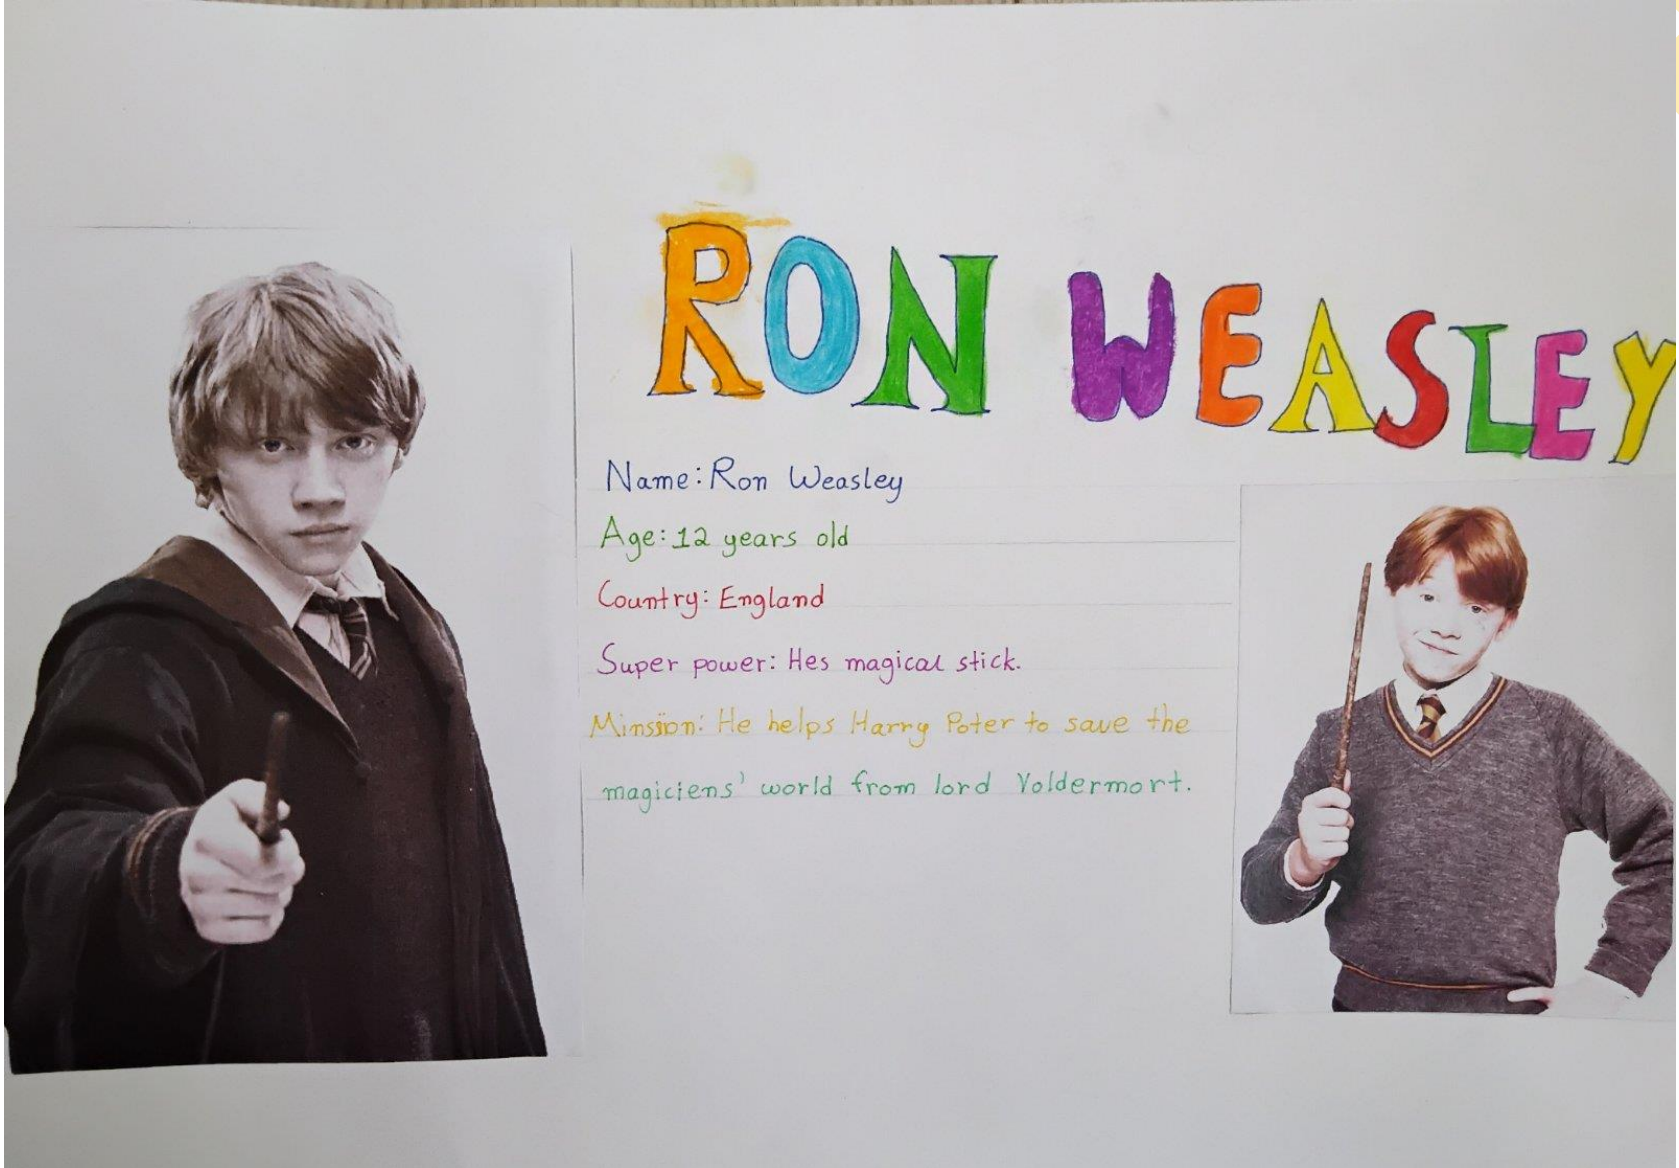 RON WEASLEY
Name: Ron Weasley
Age: 12 years old
Country: England
Super power: Hes magical stick.
Minsion: He helps Harry Poter to save the
magiciens' world from lord Voldermort.